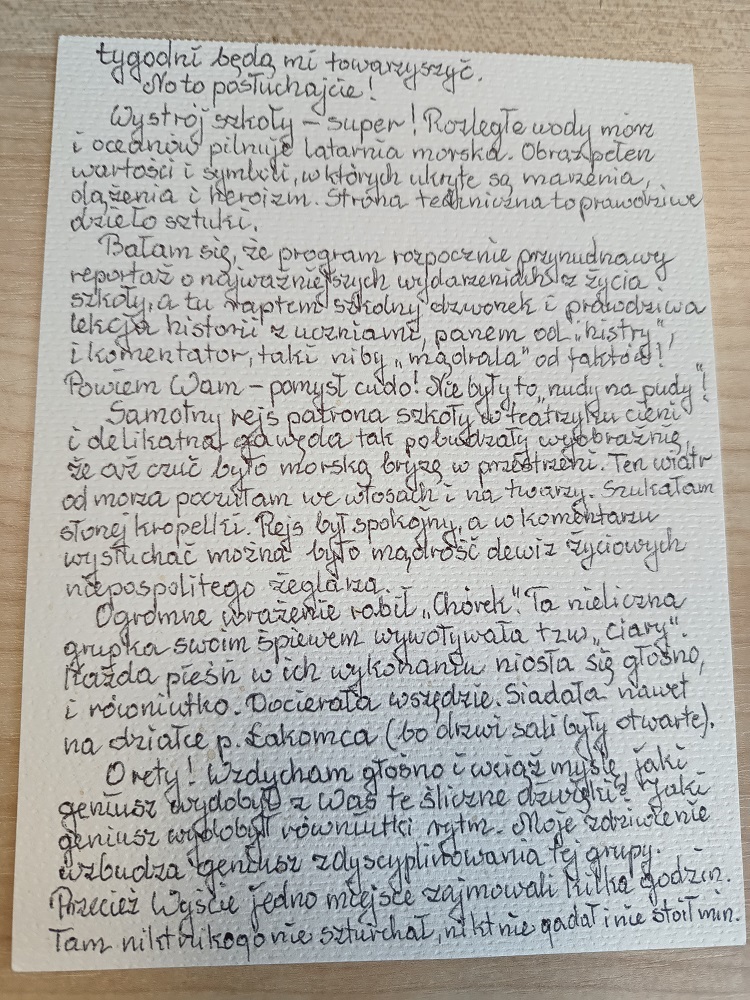 tygodni będą mi towarzyszyć.
No to posłuchajcie!
Wystrój szkoły – super! Rozległe wody mórz
i oceanów pilnuje latarnia morska. Obraz pełen
wartości i symboli, w których ukryte są marzenia,
dążenia i heroizm. Strona techniczna to prawdziwe
dzieło sztuki.
Bałam się, że program rozpocznie przynudnawy
reportaż o najważniejszych wydarzeniach z życia
szkoły, a tu raptem szkolny dzwonek i prawdziwa
lekcja historii z uczniami, panem od „histry",
i komentator, taki niby „mądrala" od faktów!
Powiem Wam – pomysł cudo! Nie były to „nudy na pudy"!
Samotny rejs patrona szkoły w teatrzyku cieni
i delikatna gawęda tak pobudzały wyobraźnię,
że aż czuć było morską bryzę w przestrzeni. Ten wiatr
od morza poczułam we włosach i na twarzy. Szukałam
słonej kropelki. Rejs był spokojny, a w komentarzu
wysłuchać można było mądrość dewiz życiowych
niepospolitego żeglarza.
Ogromne wrażenie robił „Chórek". Ta nieliczna
grupka swoim śpiewem wywoływała tzw. „ciary".
Każda pieśń w ich wykonaniu niosła się głośno,
i równiutko. Docierała wszędzie. Siadała nawet
na działce p. Łakomca (bo drzwi sali były otwarte).
O rety! Wzdycham głośno i wciąż myślę, jaki
geniusz wydobył z Was te śliczne dźwięki? Jaki
geniusz wydobył równiutki rytm. Moje zdziwienie
wzbudza geniusz zdyscyplinowania tej grupy.
Przecież Wyście jedno miejsce zajmowali kilka godzin.
Tam nikt nikogo nie szturchał, nikt nie gadał i nie stroił min.